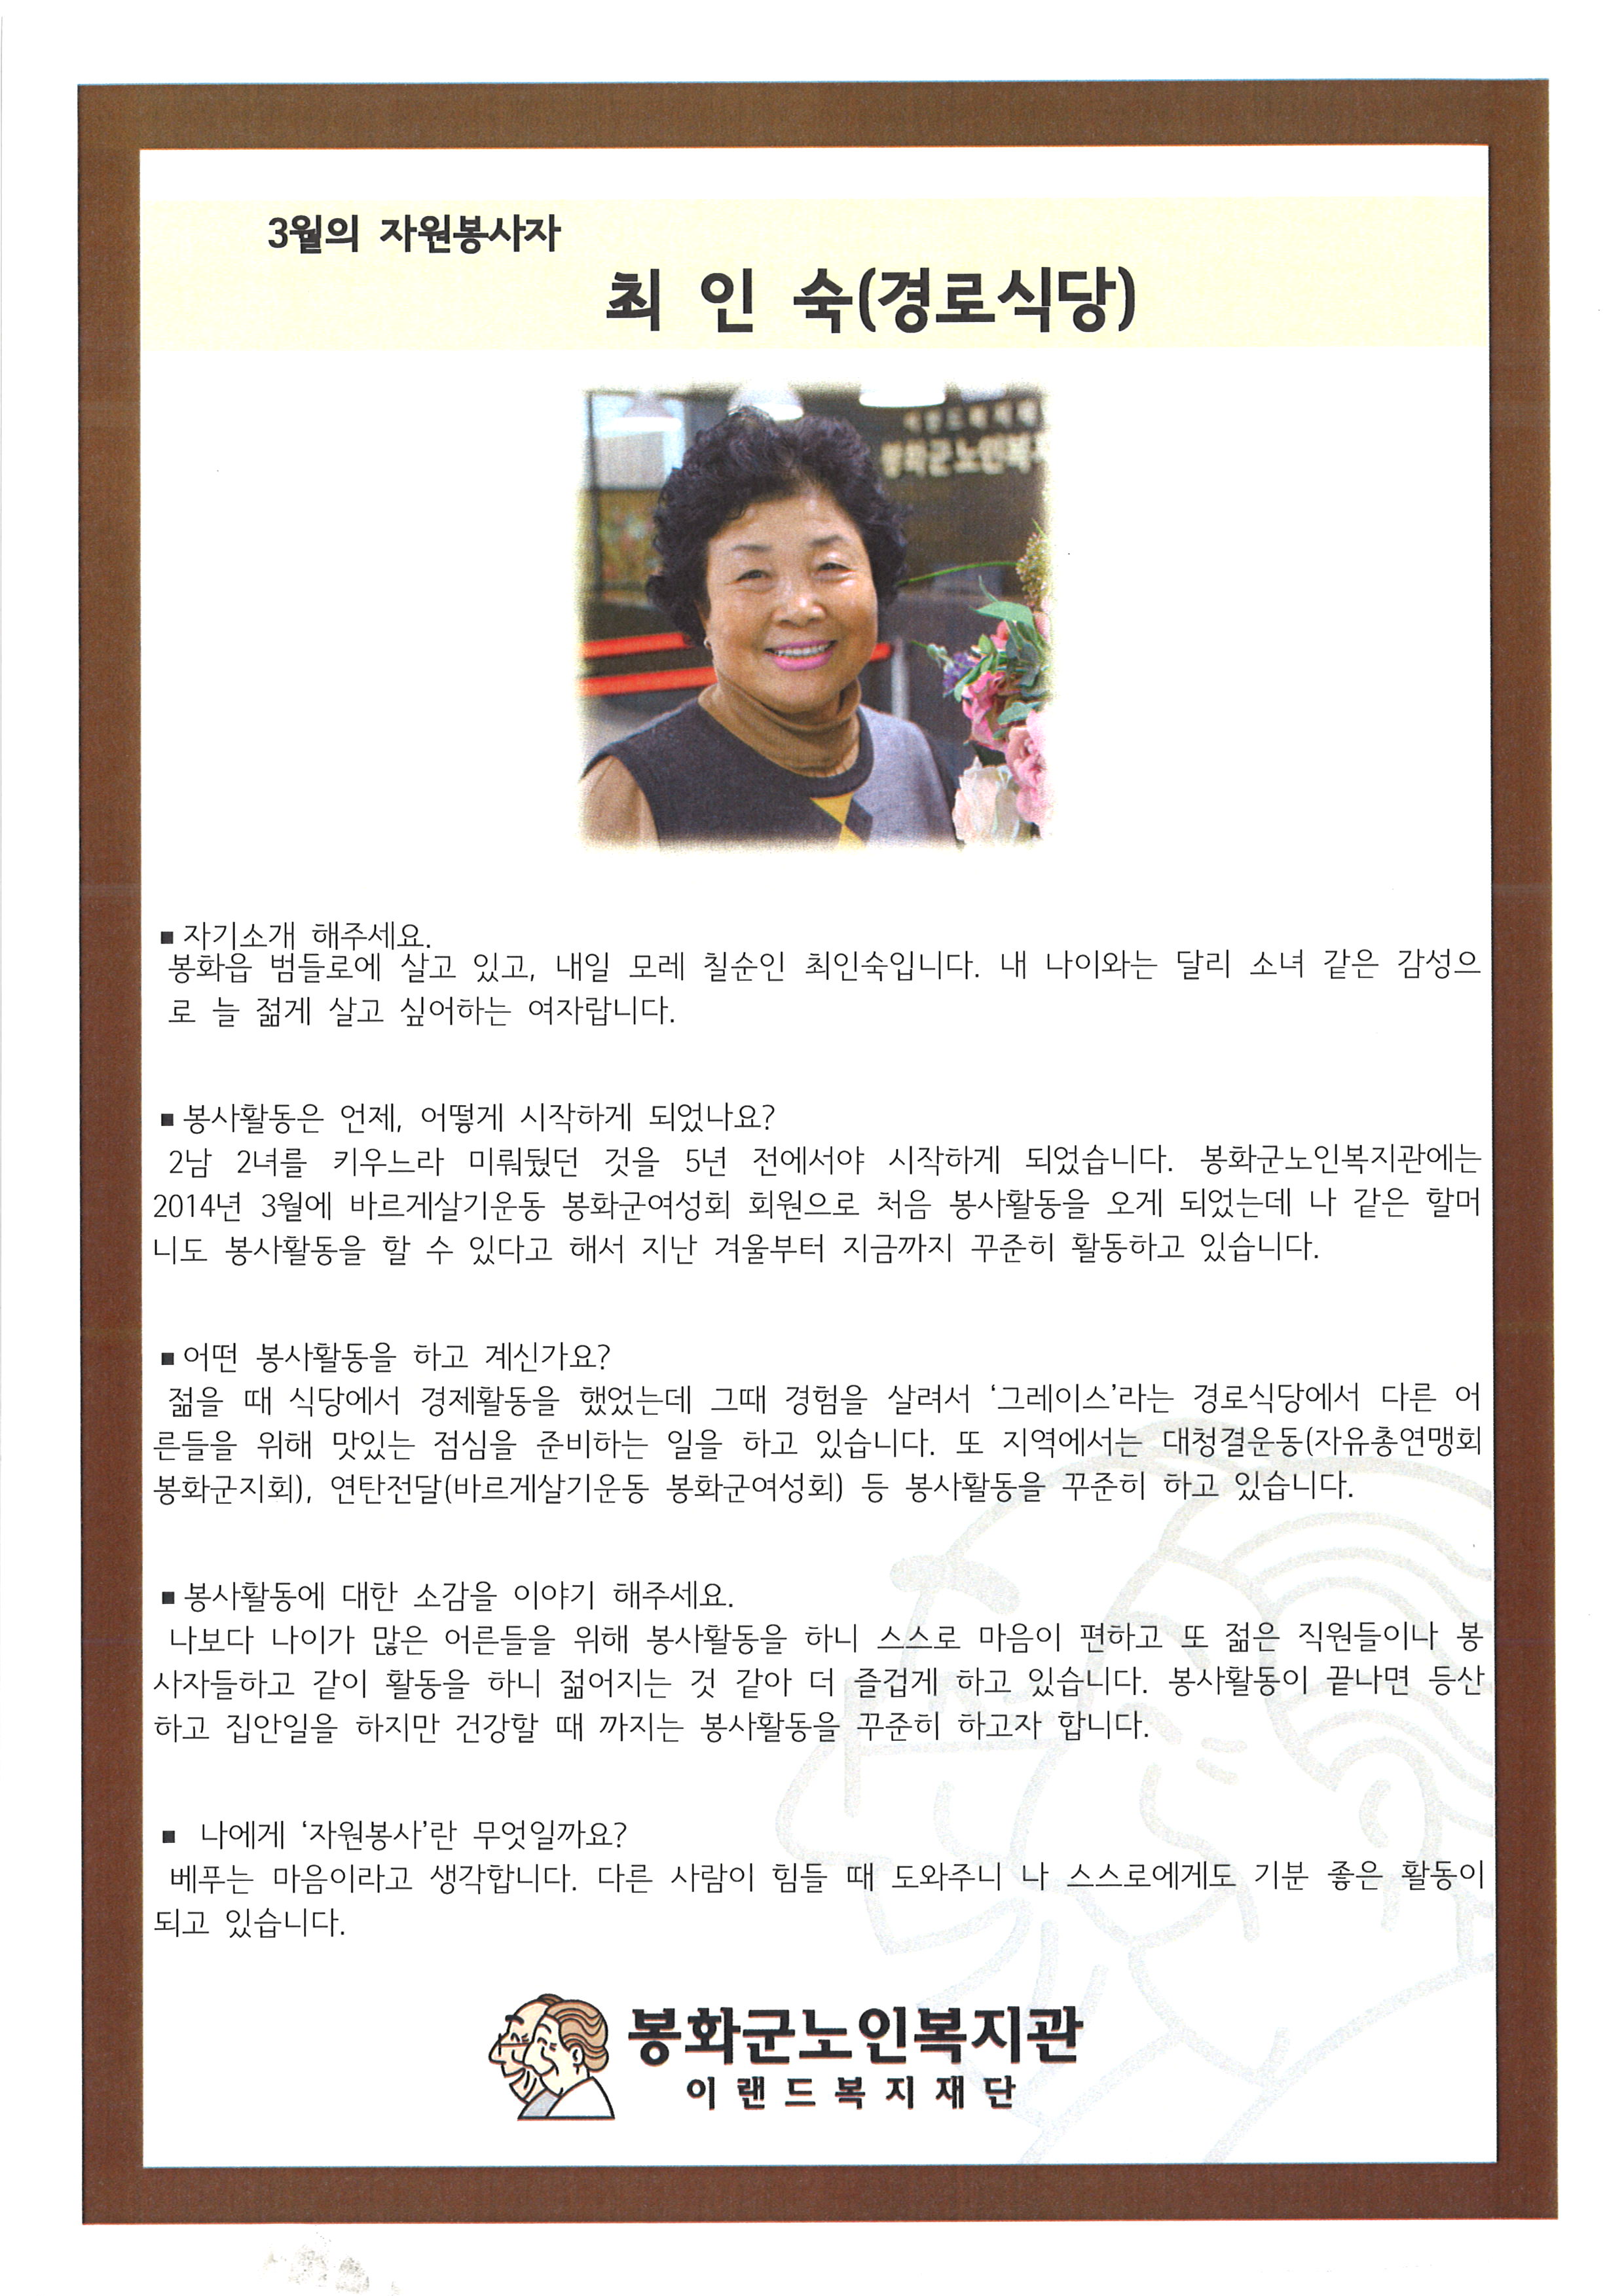 3월의 자원봉사자
최 인 숙(경로식당)
봉화군노인복
■ 자기소개 해주세요.
봉화읍 범들로에 살고 있고, 내일 모레 칠순인 최인숙입니다. 내 나이와는 달리 소녀 같은 감성으
로 늘 젊게 살고 싶어하는 여자랍니다.
■ 봉사활동은 언제, 어떻게 시작하게 되었나요?
2남 2녀를 키우느라 미뤄뒀던 것을 5년 전에서야 시작하게 되었습니다. 봉화군노인복지관에는
2014년 3월에 바르게살기운동 봉화군여성회 회원으로 처음 봉사활동을 오게 되었는데 나 같은 할머
니도 봉사활동을 할 수 있다고 해서 지난 겨울부터 지금까지 꾸준히 활동하고 있습니다.
■ 어떤 봉사활동을 하고 계신가요?
젊을 때 식당에서 경제활동을 했었는데 그때 경험을 살려서 ‘그레이스’라는 경로식당에서 다른 어
른들을 위해 맛있는 점심을 준비하는 일을 하고 있습니다. 또 지역에서는 대청결운동(자유총연맹회
봉화군지회), 연탄전달(바르게살기운동 봉화군여성회) 등 봉사활동을 꾸준히 하고 있습니다.
■ 봉사활동에 대한 소감을 이야기 해주세요.
나보다 나이가 많은 어른들을 위해 봉사활동을 하니 스스로 마음이 편하고 또 젊은 직원들이나 봉
사자들하고 같이 활동을 하니 젊어지는 것 같아 더 즐겁게 하고 있습니다. 봉사활동이 끝나면 등산
하고 집안일을 하지만 건강할 때 까지는 봉사활동을 꾸준히 하고자 합니다.
■ 나에게 ‘자원봉사’란 무엇일까요?
베푸는 마음이라고 생각합니다. 다른 사람이 힘들 때 도와주니 나 스스로에게도 기분 좋은 활동이
되고 있습니다.
봉화군노인복지관
이랜드복지재단